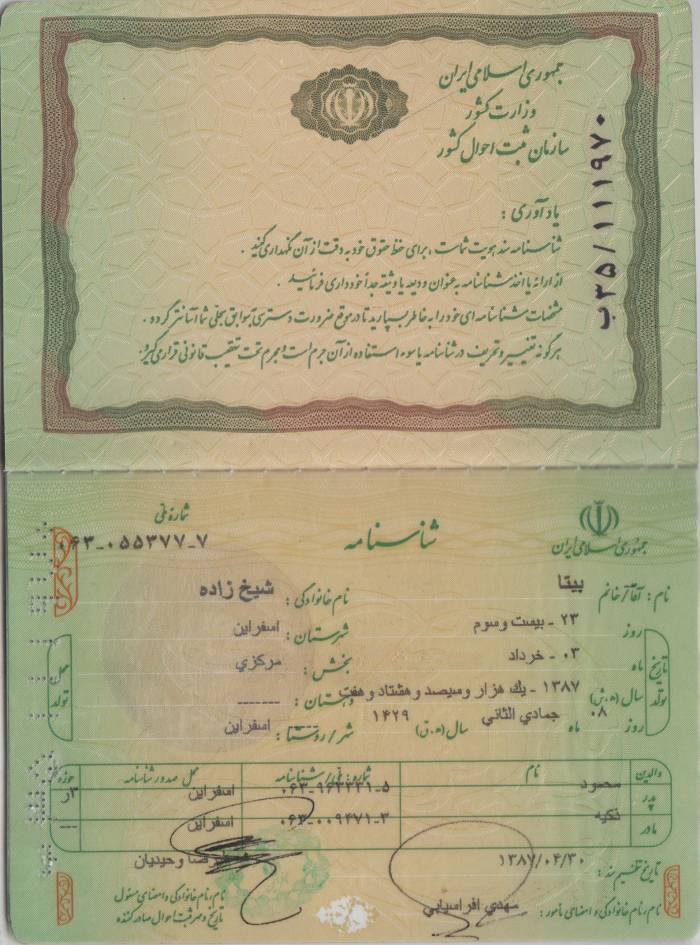 جمهوری اسلامی ایران
وزارت کشور
سازمان ثبت احوال کشور
ب۳۵/۱۱۱۹۷۰
یادآوری :
شناسنامه سند هویت شماست ، برای حفظ حقوق خود به دقت از آن نگهداری کنید .
از ارائه یا اخذ شناسنامه به عنوان ودیعه یا وثیقه جداً خودداری فرمائید .
مشخصات شناسنامه ای خود را به خاطر بسپارید تا در موقع ضرورت دسترسی به سوابق سجلی شما آسانتر گردد .
هرگونه تغییر و تحریف در شناسنامه یا سوء استفاده از آن جرم است و مجرم تحت تعقیب قانونی قرار می گیرد .
جمهوری اسلامی ایران
شناسنامه
شماره ملی
۰۶۳-۰۵۵۳۷۷-۷
نام : آقا/خانم بیتا نام خانوادگی : شیخ زاده
تاریخ تولد
روز ۲۳ - بیست وسوم شهرستان : اسفراین
ماه ۰۳ - خرداد بخش : مرکزي
سال (ه.ش) ۱۳۸۷ - یك هزار وسیصد و هشتاد و هفت دهستان : -------
روز ۰۸ ماه جمادي الثاني سال (ه.ق) ۱۴۲۹ شهر/روستا : اسفراین
محل تولد
والدین نام شماره ملی/شناسنامه محل صدور شناسنامه حوزه
پدر محمود ۰۶۳-۹۶۳۳۳۱-۵ اسفراین ۳ر
مادر ۰۶۳-۰۰۹۴۷۱-۳ اسفراین ---
تاریخ تنظیم سند : ۱۳۸۷/۰۴/۳۰
وحیدیان
نام، نام خانوادگی و امضای مأمور : مهدي افراسیابي
نام، نام خانوادگی و امضای مسئول
تاریخ و مهر ثبت احوال صادرکننده